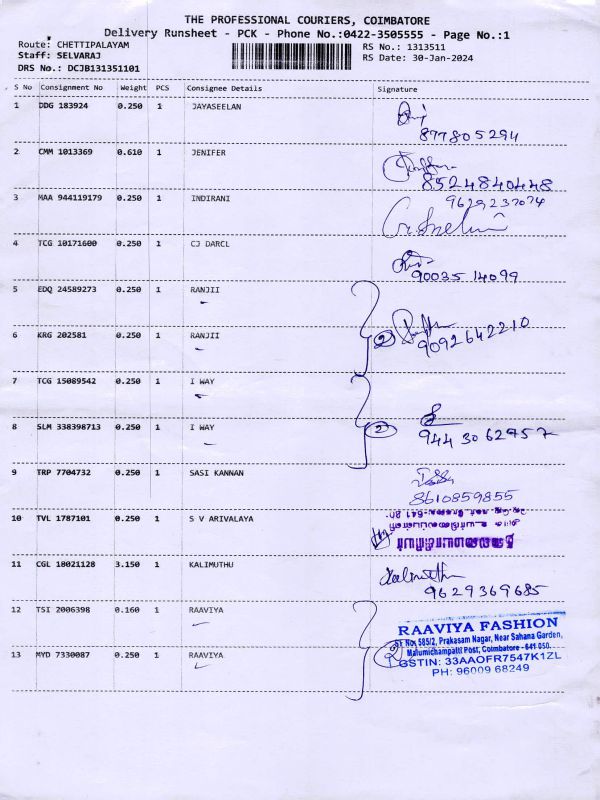 THE PROFESSIONAL COURIERS, COIMBATORE
Delivery Runsheet - PCK - Phone No.:0422-3505555 - Page No.:1
Route: CHETTIPALAYAM
Staff: SELVARAJ
DRS No.: DCJB131351101
RS No.: 1313511
RS Date: 30-Jan-2024
S No Consignment No Weight PCS Consignee Details Signature
1 DDG 183924 0.250 1 JAYASEELAN
877805294
2 CMM 1013369 0.610 1 JENIFER
8524840448
3 MAA 944119179 0.250 1 INDIRANI
9629237074
4 TCG 10171600 0.250 1 CJ DARCL
90035 14099
5 EDQ 24589273 0.250 1 RANJII
6 KRG 202581 0.250 1 RANJII
2
9092642210
7 TCG 15089542 0.250 1 I WAY
8 SLM 338398713 0.250 1 I WAY
2
944 3062957
9 TRP 7704732 0.250 1 SASI KANNAN
8610859855
10 TVL 1787101 0.250 1 S V ARIVALAYA
11 CGL 18021128 3.150 1 KALIMUTHU
Kalimuthu
9629369685
12 TSI 2006398 0.160 1 RAAVIYA
13 MYD 7330087 0.250 1 RAAVIYA
2
RAAVIYA FASHION
SF No. 585/2, Prakasam Nagar, Near Sahana Garden,
Malumichampatti Post, Coimbatore - 641 050.
GSTIN: 33AAOFR7547K1ZL
PH: 96009 68249